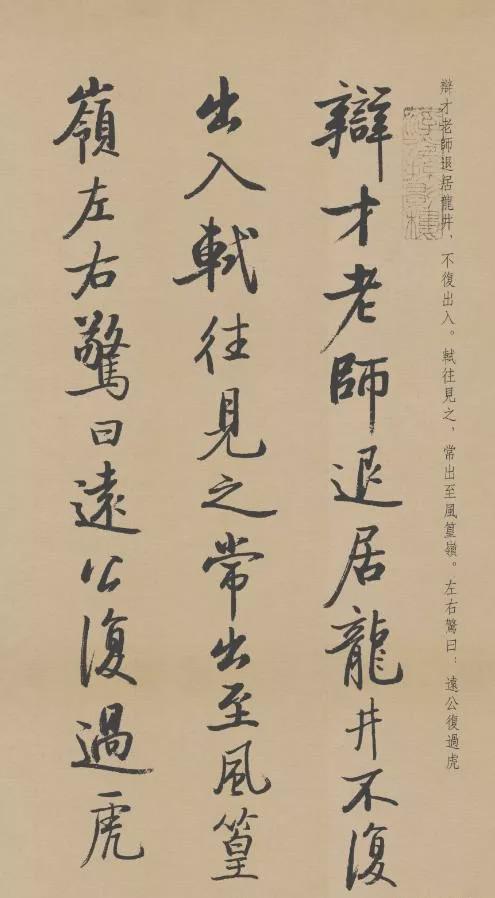 辯才老師退居龍井，不復出入。軾往見之，常出至風篁嶺。左右驚曰：遠公復過虎
辯才老師退居龍井不復
出入軾往見之常出至風篁
嶺左右驚曰遠公復過虎